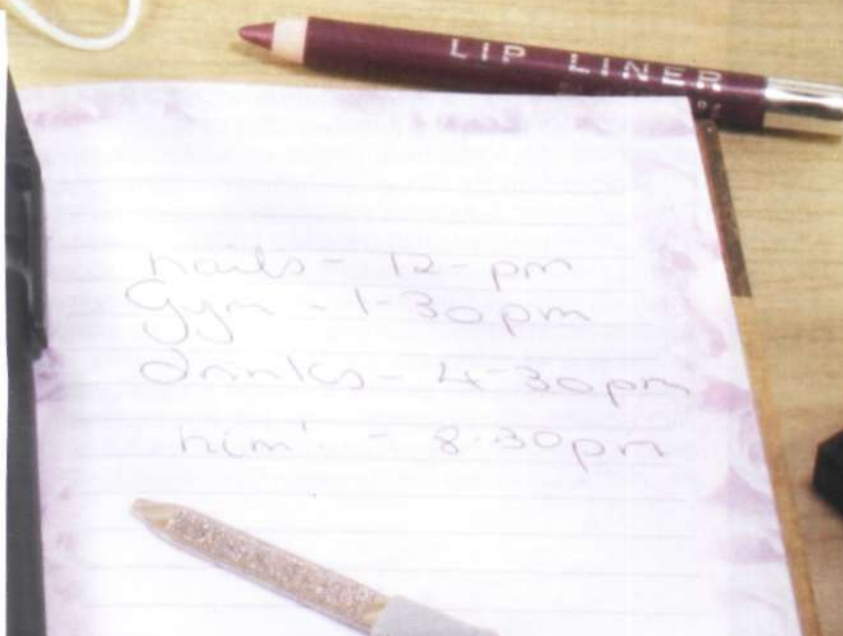 LIP LINER
nails - 12- pm
Gym - 1-30pm
drinks - 4-30pm
him' - 8.30pm